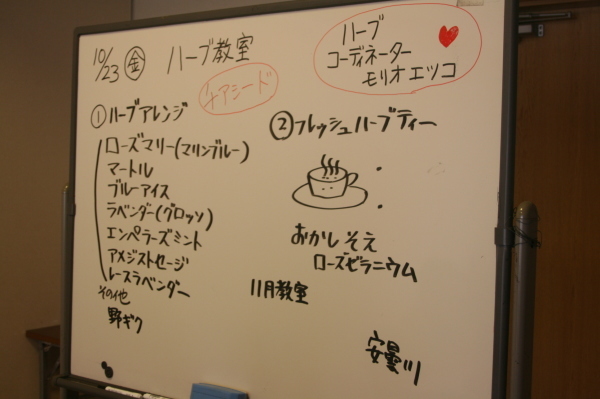 10/23 金 ハーブ教室
ハーブ
コーディネーター
モリオエツコ
チアシード
① ハーブアレンジ
ローズマリー(マリンブルー)
マートル
ブルーアイス
ラベンダー(グロッソ)
エンペラーズミント
アメジストセージ
レースラベンダー
その他
野ギク
② フレッシュハーブティー
おかしそえ
ローズゼラニウム
11月教室
安曇川